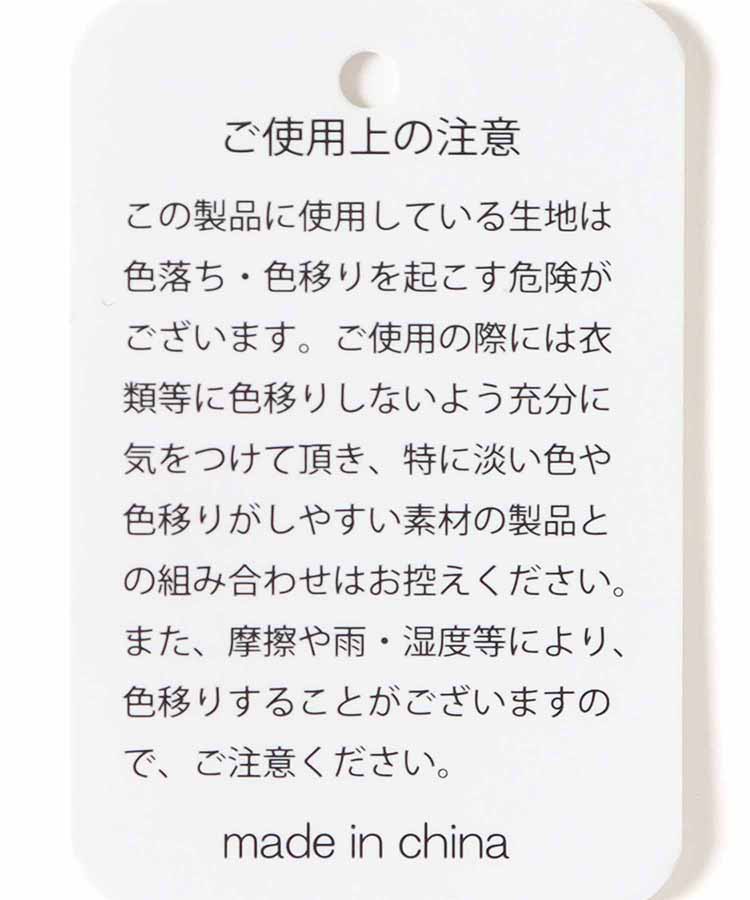 ご使用上の注意
この製品に使用している生地は
色落ち・色移りを起こす危険が
ございます。ご使用の際には衣
類等に色移りしないよう充分に
気をつけて頂き、特に淡い色や
色移りがしやすい素材の製品と
の組み合わせはお控えください。
また、摩擦や雨・湿度等により、
色移りすることがございますの
で、ご注意ください。
made in china